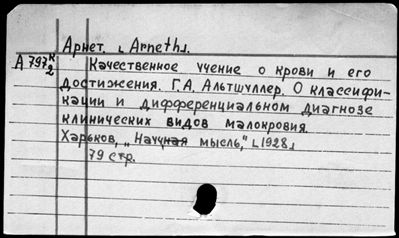 Арнет. ⌊Arneth⌋.
А 797к/2 Качественное учение о крови и его
достижения. Г.А. Альтшуллер. О классифи-
кации и дифференциальном диагнозе
клинических видов малокровия.
Харьков, „Научная мысль," ⌊1928⌋
79 стр.